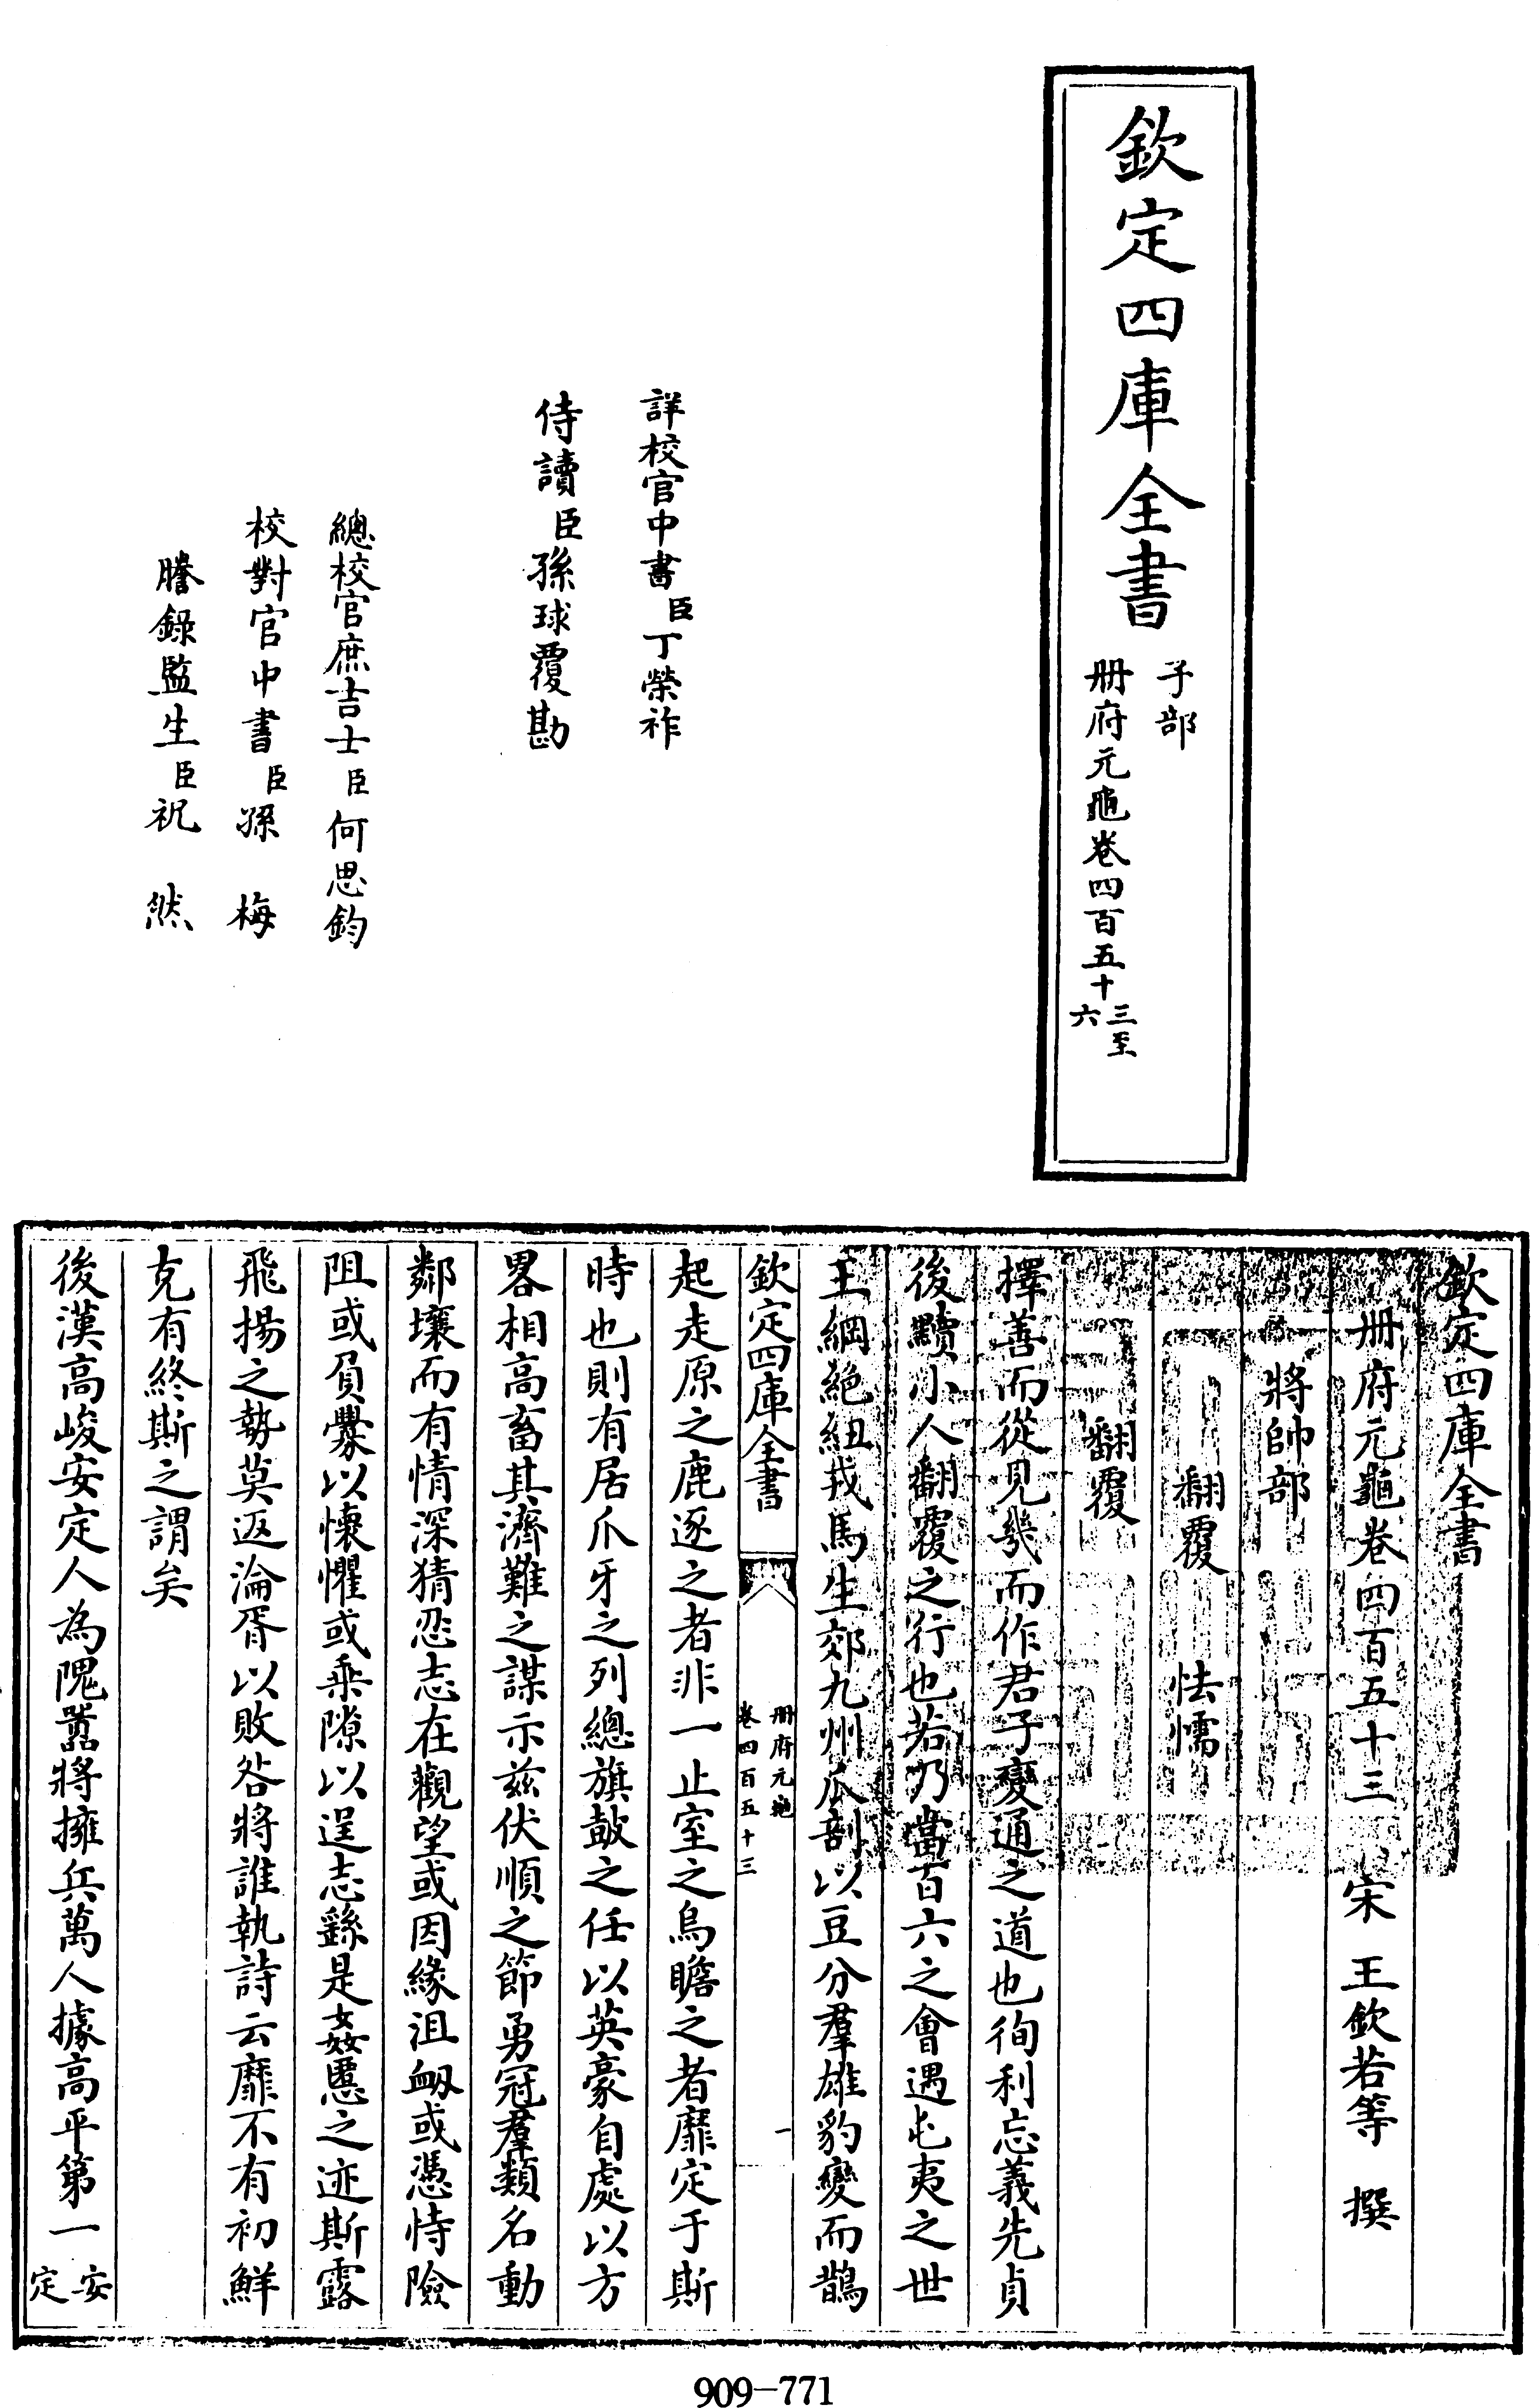 欽定四庫全書
子部
册府元龜卷四百五十三至六
詳校官中書臣丁榮祚
侍讀臣孫球覆勘
總校官庶吉士臣何思鈞
校對官中書臣孫梅
謄錄監生臣祝㸐
欽定四庫全書
册府元龜卷四百五十三 宋 王欽若等 撰
將帥部
翻覆 怯懦
翻覆
擇善而從見㡬而作君子變通之道也徇利忘義先貞
後黷小人翻覆之行也若乃當百六之會遇屯夷之世
王綱絶紐戎馬生郊九州瓜剖以豆分羣雄豹變而鵲
欽定四庫全書
册府元龜
卷四百五十三
一
起走原之鹿逐之者非一止室之烏瞻之者靡定于斯
時也則有居爪牙之列總旗鼓之任以英豪自處以方
畧相高畜其濟難之謀示兹伏順之節勇冠羣類名動
鄰壤而有情深猜忍志在觀望或因緣沮衂或憑恃險
阻或負釁以懷懼或乘隙以逞志繇是姦慝之迹斯露
飛揚之勢莫返淪胥以敗咎將誰執詩云靡不有初鮮
克有終斯之謂矣
後漢高峻安定人為隗囂將擁兵萬人據高平第一安定
909-771